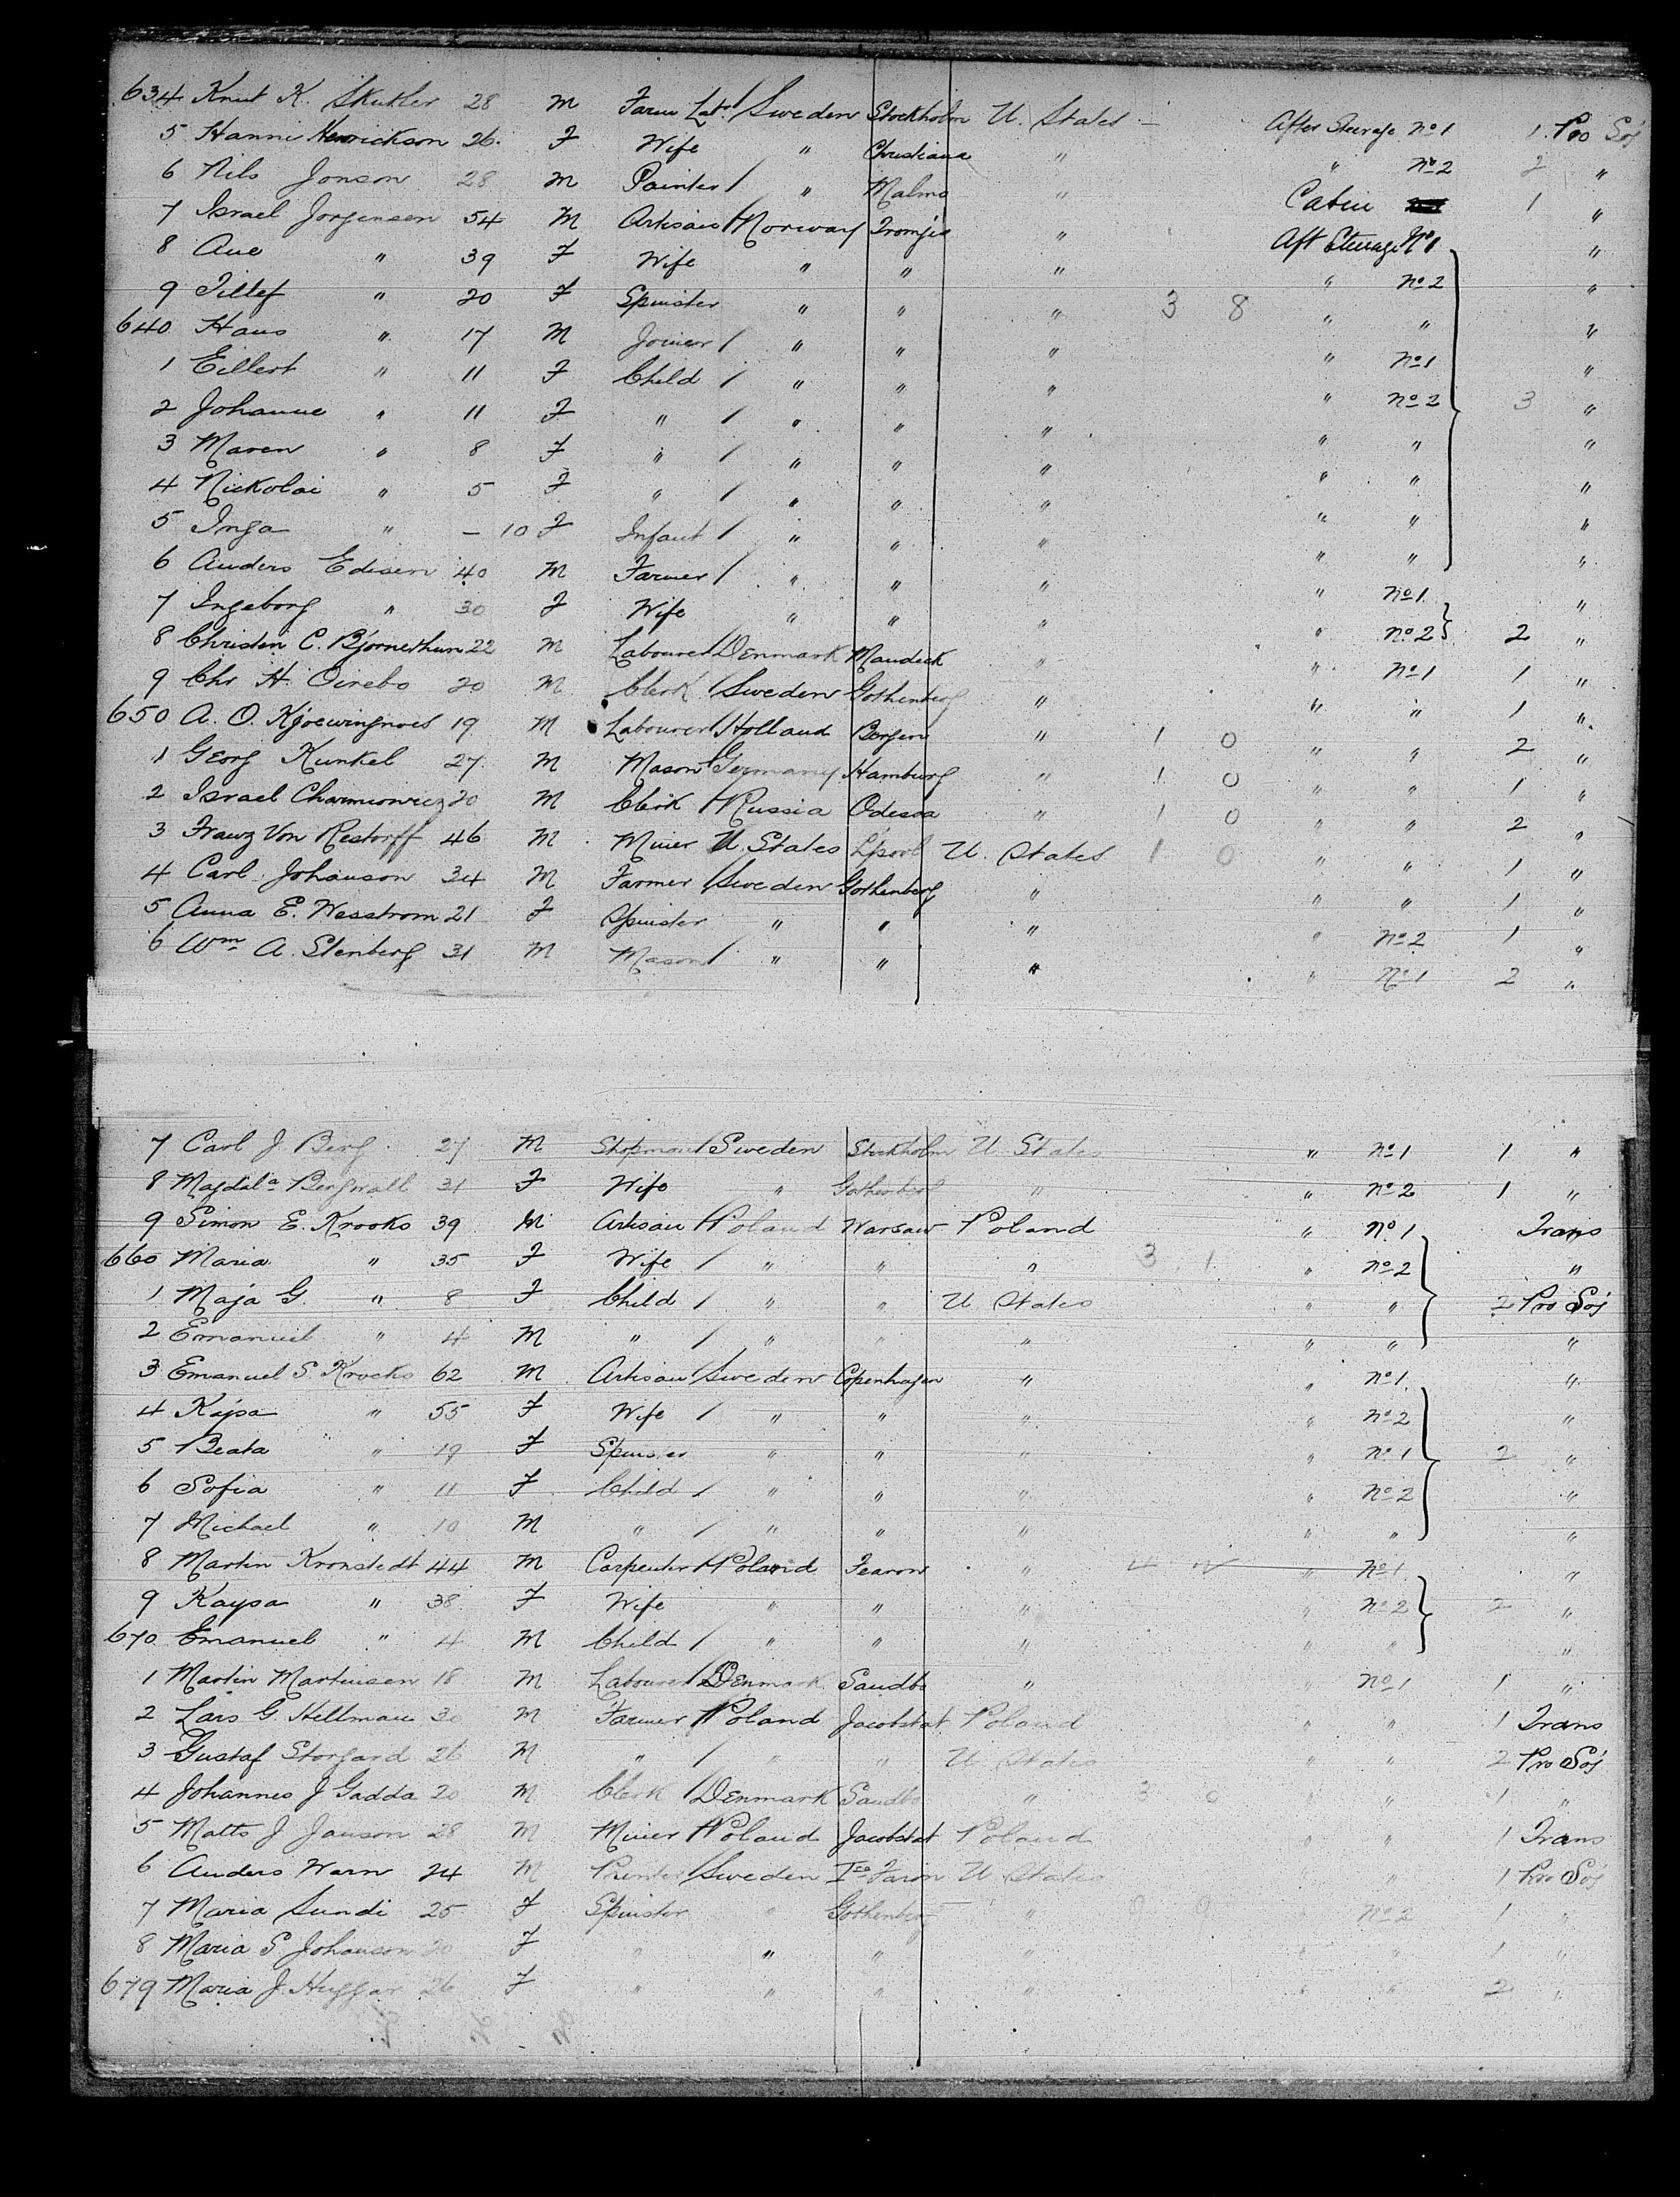 634 Knut K. Skutler 28 M Farm Labr / Sweden Stockholm U. States — After Steerage No 1 1 Pro Soj
5 Hanni Henrickson 26 F Wife " Christiana " " No 2 2 "
6 Nils Jonson 28 M Painter / " Malmo " Cabin 1 "
7 Israel Jorgensen 54 M Artisan / Norway " Aft Steerage No 1 "
8 Ane " 39 F Wife " " " " No 2 "
9 Tillef " 20 F Spinster " " " 3 8 " " "
640 Hans " 17 M Joiner / " " " " No 1 "
1 Eillert " 11 F Child / " " " " No 2 3 "
2 Johanne " 11 F " / " " " " " "
3 Maren " 8 F " / " " " " " "
4 Nickolai " 5 F " / " " " " " "
5 Inga " — 10 F Infant / " " " " " "
6 Anders Edisen 40 M Farmer / " " " " No 1 "
7 Ingeborg " 30 F Wife " " " " No 2 2 "
8 Christen C. 22 M Labourer / Denmark " " No 1 1 "
9 Chr H. Oirebo 20 M Clerk / Sweden Gothenberg " " " 1 "
650 A. O. 19 M Labourer / Holland Bergen " 1 0 " " 2 "
1 Georg Kunkel 27 M Mason Germany Hamburg " 1 0 " " 1 "
2 Israel 20 M Clerk / Russia Odessa " 1 0 " " 2 "
3 Franz Von Restorff 46 M Miner U. States L'pool U. States 1 0 " " 1 "
4 Carl Johanson 34 M Farmer / Sweden Gothenberg " " " 1 "
5 Anna E. Wesstrom 21 F Spinster " " " " No 2 1 "
6 Wm A. Stenberg 31 M Mason / " " " " No 1 2 "
7 Carl J. Berg 27 M Shopman / Sweden Stockholm U States " No 1 1 "
8 Magdala Bergwall 31 F Wife " Gothenberg " " No 2 1 "
9 Simon E. Krooks 39 M Artisan / Poland Warsaw Poland " No 1 Trans
660 Maria " 35 F Wife / " " " 3 1 " No 2 "
1 Maja G. " 8 F Child / " " U States " " 2 Pro Soj
2 Emanuel " 4 M " / " " " " " "
3 Emanuel S. Krooks 62 M Artisan / Sweden Copenhagen " " No 1 "
4 Kajsa " 55 F Wife / " " " " No 2 "
5 Beata " 19 F Spinster " " " " No 1 2 "
6 Sofia " 11 F Child / " " " " No 2 "
7 Michael " 10 M " / " " " " " "
8 Martin Kronstedt 44 M Carpenter / Poland Fearon " " No 1 "
9 Kaysa " 38 F Wife " " " " No 2 2 "
670 Emanuel " 4 M Child / " " " " " "
1 Martin Martinsen 18 M Labourer / Denmark Sandbo " " No 1 1 "
2 Lars G. Hellman 30 M Farmer / Poland Jacobstat Poland " " 1 Trans
3 Gustaf Storgard 26 M " / " " U States " " 2 Pro Soj
4 Johannes J Gadda 20 M Clerk / Denmark Sandbo " 3 0 " " 1 "
5 Matts J Janson 28 M Miner / Poland Jacobstat Poland " " 1 Trans
6 Anders Warn 24 M / Sweden U States " " 1 Pro Soj
7 Maria Sundi 25 F Spinster " Gothenberg " " No 2 1 "
8 Maria S Johanson 20 F " " " " " " 1 "
679 Maria J. Huggar 26 F " " " " " " 2 "